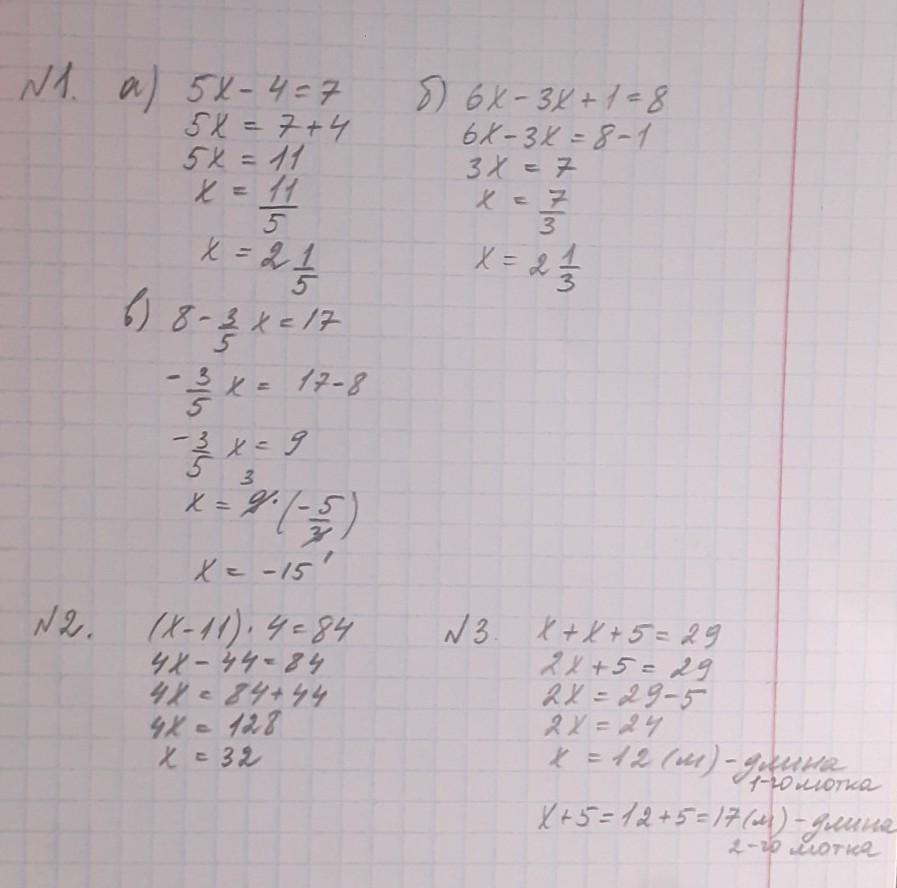 №1. а) 5x - 4 = 7
5x = 7 + 4
5x = 11
x = 11/5
x = 2 1/5
б) 6x - 3x + 1 = 8
6x - 3x = 8 - 1
3x = 7
x = 7/3
x = 2 1/3
в) 8 - 3/5 x = 17
- 3/5 x = 17 - 8
- 3/5 x = 9
3
x = 9 · (- 5/3)
1
x = -15
№2. (x - 11) · 4 = 84
4x - 44 = 84
4x = 84 + 44
4x = 128
x = 32
№3. x + x + 5 = 29
2x + 5 = 29
2x = 29 - 5
2x = 24
x = 12 (м) - длина
1-го мотка
x + 5 = 12 + 5 = 17 (м) - длина
2-го мотка